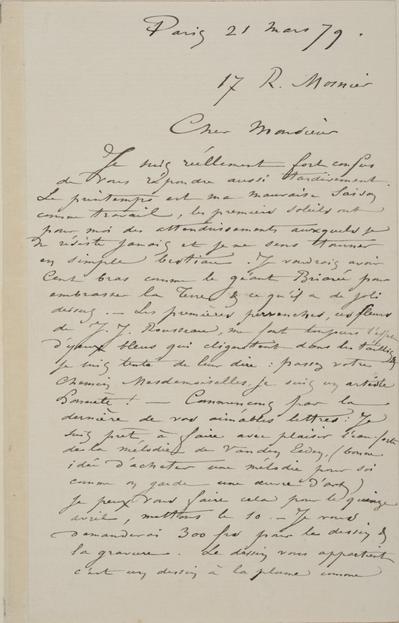 Paris 21 mars 79.
17 R. Mosnier
Cher Monsieur
Je suis réellement fort confus
de vous répondre aussi tardivement.
Le printemps est ma mauvaise saison
comme travail, les premiers soleils ont
pour moi des attendrissements auxquels je
ne résiste jamais et je me sens tourner
en simple bestiau. Je voudrais avoir
cent bras comme le géant Briarée pour
embrasser la Terre & ce qu'il a de joli
dessus. — Les premières pervenches, ces fleurs
de J. J. Rousseau, me font toujours l'effet
d'yeux bleus qui clignotent dans les taillis,
je suis tenté de leur dire : passez votre
chemin, Mesdemoiselles, je suis un artiste
honnête ! — Commençons par la
dernière de vos aimables lettres : Je
suis prêt à faire avec plaisir l'eau-forte
de la mélodie de Vanden Eeden, (bonne
idée d'acheter une mélodie pour soi
comme on garde une œuvre d'art)
je peux vous faire cela pour le quinze
avril, mettons le 10 — Je vous
demanderai 300 frs pour le dessin &
la gravure. Le dessin vous appartient
c'est un dessin à la plume comme